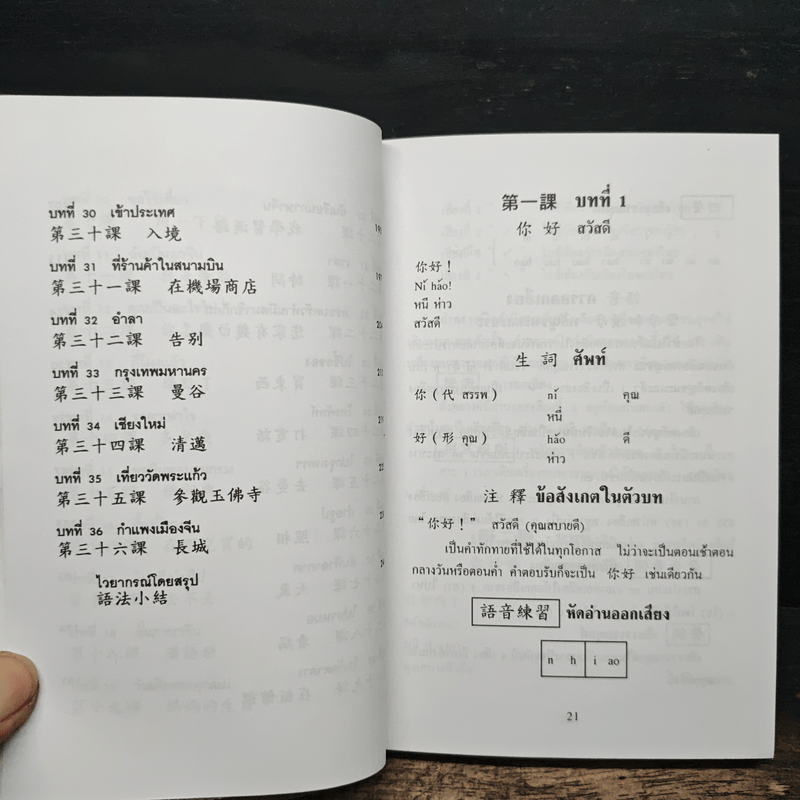 บทที่ 30 เข้าประเทศ
第三十課 入境
บทที่ 31 ที่ร้านค้าในสนามบิน
第三十一課 在機場商店
บทที่ 32 อำลา
第三十二課 告別
บทที่ 33 กรุงเทพมหานคร
第三十三課 曼谷
บทที่ 34 เชียงใหม่
第三十四課 清邁
บทที่ 35 เที่ยววัดพระแก้ว
第三十五課 參觀玉佛寺
บทที่ 36 กำแพงเมืองจีน
第三十六課 長城
ไวยากรณ์โดยสรุป
語法小結
第一課 บทที่ 1
你好 สวัสดี
你好！
Nǐ hǎo!
หนี ห่าว
สวัสดี
生詞 ศัพท์
你（代 สรรพ） nǐ คุณ
หนี่
好（形 คุณ） hǎo ดี
ห่าว
注釋 ข้อสังเกตในตัวบท
“你好！” สวัสดี (คุณสบายดี)
เป็นคำทักทายที่ใช้ได้ในทุกโอกาส ไม่ว่าจะเป็นตอนเช้าตอน
กลางวันหรือตอนค่ำ คำตอบรับก็จะเป็น 你好 เช่นเดียวกัน
語音練習 หัดอ่านออกเสียง
n h i ao
21